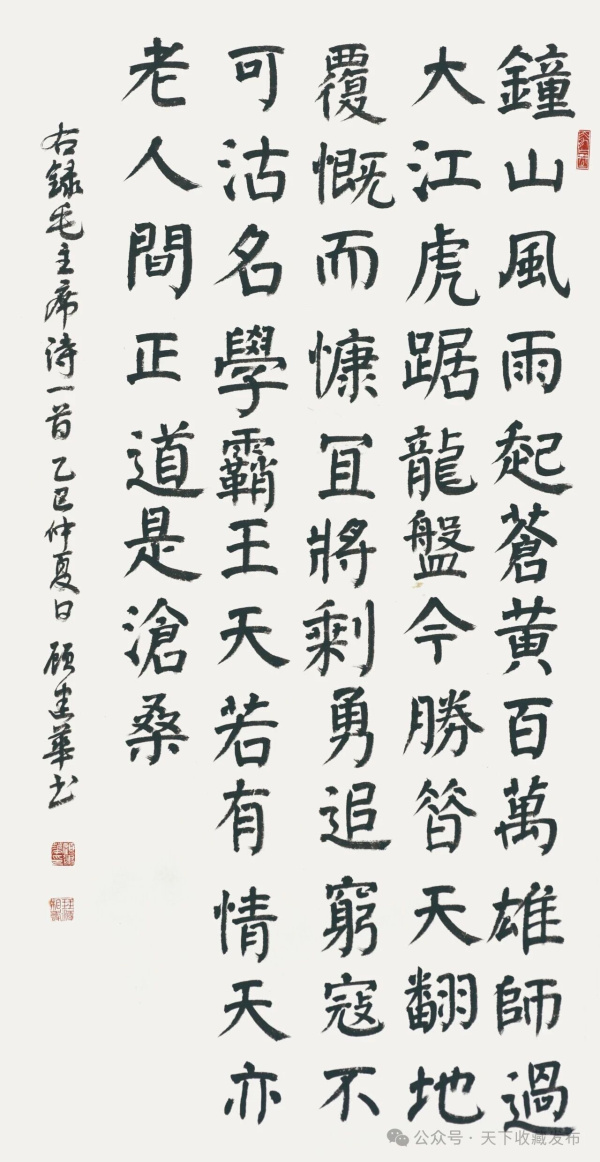 鐘山風雨起蒼黃百萬雄師過
大江虎踞龍盤今勝昔天翻地
覆慨而慷冝將剩勇追窮寇不
可沽名學霸王天若有情天亦
老人間正道是滄桑
右録毛主席詩一首乙巳仲夏日 顾建華书
公众号·天下收藏发布